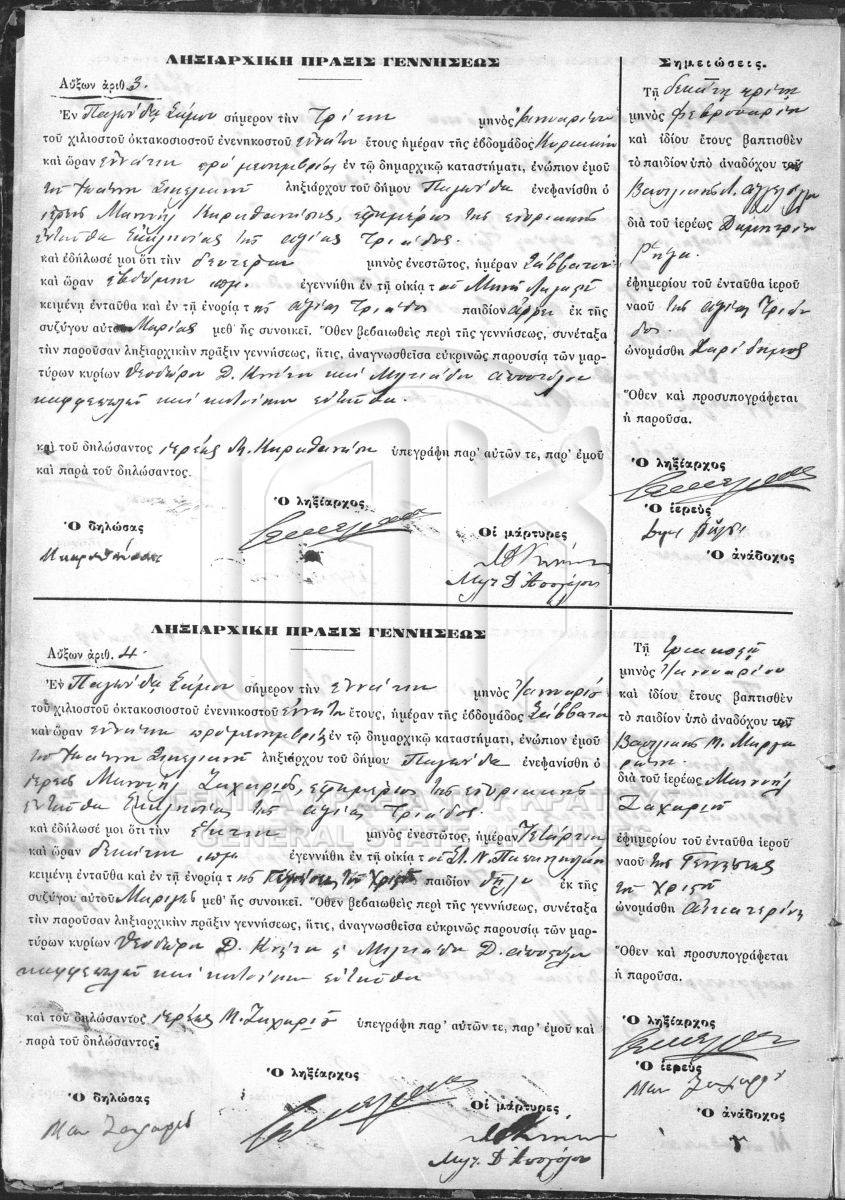 ΛΗΞΙΑΡΧΙΚΗ ΠΡΑΞΙΣ ΓΕΝΝΗΣΕΩΣ
Αὔξων ἀριθ. 3.
Ἐν Παγώνδα Σάμου σήμερον τὴν Τρίτην μηνὸς Ἰανουαρίου
τοῦ χιλιοστοῦ ὀκτακοσιοστοῦ ἐνενηκοστοῦ ἐννάτου ἔτους ἡμέραν τῆς ἑβδομάδος Κυριακὴν
καὶ ὥραν ἐννάτην πρὸ μεσημβρίας ἐν τῷ δημαρχικῷ καταστήματι, ἐνώπιον ἐμοῦ
τοῦ Ἰωάννη Σικελιανοῦ ληξιάρχου τοῦ δήμου Παγώνδα ἐνεφανίσθη ὁ
ἱερεὺς Μανουὴλ Καραθανάσης, ἐφημέριος τῆς ἐνοριακῆς
ἐνταῦθα Ἐκκλησίας τῆς ἁγίας Τριάδος.
καὶ ἐδήλωσέ μοι ὅτι τὴν δευτέραν μηνὸς ἐνεστῶτος, ἡμέραν Σάββατον
καὶ ὥραν ἑβδόμην πμ. ἐγεννήθη ἐν τῇ οἰκίᾳ τοῦ Μανουὴλ
κειμένῃ ἐνταῦθα καὶ ἐν τῇ ἐνορίᾳ τῆς ἁγίας Τριάδος παιδίον ἄρρεν ἐκ τῆς
συζύγου αὐτοῦ Μαρίας μεθ᾽ ἧς συνοικεῖ. Ὅθεν βεβαιωθεὶς περὶ τῆς γεννήσεως, συνέταξα
τὴν παροῦσαν ληξιαρχικὴν πρᾶξιν γεννήσεως, ἥτις, ἀναγνωσθεῖσα εὐκρινῶς παρουσίᾳ τῶν μαρ-
τύρων κυρίων Θεοδώρου Δ. καὶ Μιλτιάδου Ἀποστόλου
καφφεπωλῶν καὶ κατοίκων ἐνταῦθα.
καὶ τοῦ δηλώσαντος ἱερέως Μ. Καραθανάση ὑπεγράφη παρ᾽ αὐτῶν τε, παρ᾽ ἐμοῦ
καὶ παρὰ τοῦ δηλώσαντος.
Ὁ ληξίαρχος
Ὁ δηλώσας
Οἱ μάρτυρες
Μιλτ. Δ. Ἀποστόλου
Σημειώσεις.
Τῇ δεκάτῃ τρίτῃ
μηνὸς Φεβρουαρίου
καὶ ἰδίου ἔτους βαπτισθὲν
τὸ παιδίον ὑπὸ ἀναδόχου τοῦ
Βασιλικῆς
διὰ τοῦ ἱερέως Δημητρίου
Ρήγα.
ἐφημερίου τοῦ ἐνταῦθα ἱεροῦ
ναοῦ τῆς ἁγίας Τριά
δος.
ὠνομάσθη Χαρίδημος
Ὅθεν καὶ προσυπογράφεται
ἡ παροῦσα.
Ὁ ληξίαρχος
Ὁ ἱερεὺς
Ὁ ἀνάδοχος
ΛΗΞΙΑΡΧΙΚΗ ΠΡΑΞΙΣ ΓΕΝΝΗΣΕΩΣ
Αὔξων ἀριθ. 4.
Ἐν Παγώνδα Σάμου σήμερον τὴν ἐννάτην μηνὸς Ἰανουαρίου
τοῦ χιλιοστοῦ ὀκτακοσιοστοῦ ἐνενηκοστοῦ ἐννάτου ἔτους, ἡμέραν τῆς ἑβδομάδος Σάββατον
καὶ ὥραν ἐννάτην πρὸ μεσημβρίας ἐν τῷ δημαρχικῷ καταστήματι, ἐνώπιον ἐμοῦ
τοῦ Ἰωάννη Σικελιανοῦ ληξιάρχου τοῦ δήμου Παγώνδα ἐνεφανίσθη ὁ
ἱερεὺς Μανουὴλ Ζαχαρίου, ἐφημέριος τῆς ἐνοριακῆς
ἐνταῦθα Ἐκκλησίας τῆς ἁγίας Τριάδος.
καὶ ἐδήλωσέ μοι ὅτι τὴν ἕκτην μηνὸς ἐνεστῶτος, ἡμέραν Τετάρτην
καὶ ὥραν δεκάτην πμ. ἐγεννήθη ἐν τῇ οἰκίᾳ τοῦ Στ. Ν. Παπανικολάου
κειμένῃ ἐνταῦθα καὶ ἐν τῇ ἐνορίᾳ τῆς Γεννήσεως τοῦ Χριστοῦ παιδίον θῆλυ ἐκ τῆς
συζύγου αὐτοῦ Μαριγῶς μεθ᾽ ἧς συνοικεῖ. Ὅθεν βεβαιωθεὶς περὶ τῆς γεννήσεως, συνέταξα
τὴν παροῦσαν ληξιαρχικὴν πρᾶξιν γεννήσεως, ἥτις, ἀναγνωσθεῖσα εὐκρινῶς παρουσίᾳ τῶν μαρ-
τύρων κυρίων Θεοδώρου Δ. Μιλτιάδου Δ. Ἀποστόλου
καφφεπωλῶν καὶ κατοίκων ἐνταῦθα
καὶ τοῦ δηλώσαντος ἱερέως Μ. Ζαχαρίου ὑπεγράφη παρ᾽ αὐτῶν τε, παρ᾽ ἐμοῦ καὶ
παρὰ τοῦ δηλώσαντος.
Ὁ ληξίαρχος
Ὁ δηλώσας
Οἱ μάρτυρες
Μαν Ζαχαρίου
Μιλτ. Δ. Ἀποστόλου
Τῇ τριακοστῇ
μηνὸς Ἰανουαρίου
καὶ ἰδίου ἔτους βαπτισθὲν
τὸ παιδίον ὑπὸ ἀναδόχου τοῦ
Βασιλικῆς Μ. Μαργα
ρίτη.
διὰ τοῦ ἱερέως Μανουὴλ
Ζαχαρίου
ἐφημερίου τοῦ ἐνταῦθα ἱεροῦ
ναοῦ τῆς Γεννήσεως
τοῦ Χριστοῦ
ὠνομάσθη Αἰκατερίνη
Ὅθεν καὶ προσυπογράφεται
ἡ παροῦσα.
Ὁ ληξίαρχος
Ὁ ἱερεὺς
Μαν Ζαχαρίου
Ὁ ἀνάδοχος
ΓΕΝΙΚΑ ΑΡΧΕΙΑ ΤΟΥ ΚΡΑΤΟΥΣ
GENERAL STATE ARCHIVES